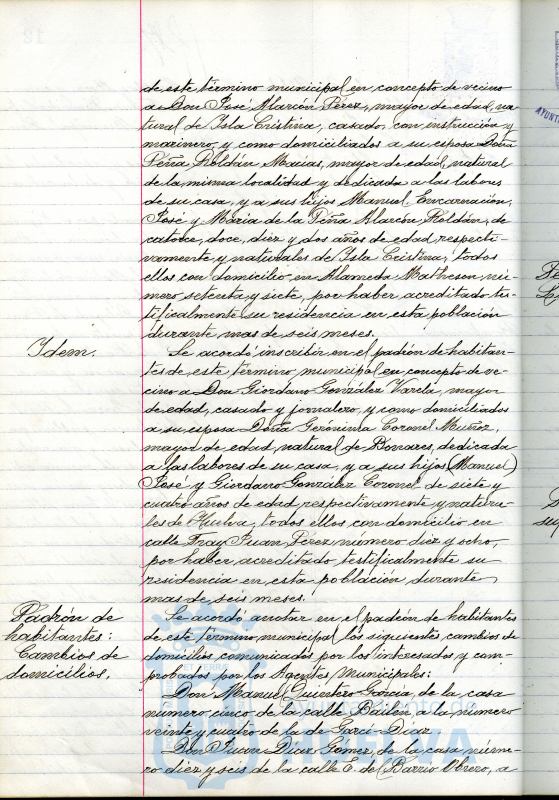 de este término municipal en concepto de vecino
a Don José Alarcón Pérez, mayor de edad, na-
tural de Isla Cristina, casado, con instrucción y
marinero, y como domiciliados a su esposa Doña
Peña Roldán Macías, mayor de edad, natural
de la misma localidad y dedicada a las labores
de su casa, y a sus hijos Manuel, Encarnación,
José y María de la Peña Alarcón Roldán, de
catorce, doce, diez y dos años de edad, respecti-
vamente y naturales de Isla Cristina, todos
ellos con domicilio en Alameda Matheson nú-
mero setenta y siete, por haber acreditado tes-
tificalmente su residencia en esta población
durante mas de seis meses.
Idem.
Se acordó inscribir en el padrón de habitan-
tes de este término municipal en concepto de ve-
cino a Don Giordano González Varela, mayor
de edad, casado y jornalero, y como domiciliados
a su esposa Doña Gerónima Coronel Muñoz,
mayor de edad, natural de Bonares, dedicada
a las labores de su casa, y a sus hijos (Manuel)
José y Giordano González Coronel de siete y
cuatro años de edad respectivamente y natura-
les de Huelva, todos ellos con domicilio en
calle Fray Juan Pérez número diez y ocho,
por haber acreditado testificalmente su
residencia en esta población durante
mas de seis meses.
Padrón de
habitantes:
Cambios de
domicilios.
Se acordó anotar en el padrón de habitantes
de este término municipal los siguientes cambios de
domicilios comunicados por los interesados y com-
probados por los Agentes Municipales:
Don Manuel Quintero García, de la casa
número cinco de la calle Bailén, a la número
veinte y cuatro de la de Garci-Diaz.
Don Juan Diaz Gómez, de la casa núme-
ro diez y seis de la calle E. del Barrio Obrero, a
Ayuntamiento de
HUELVA